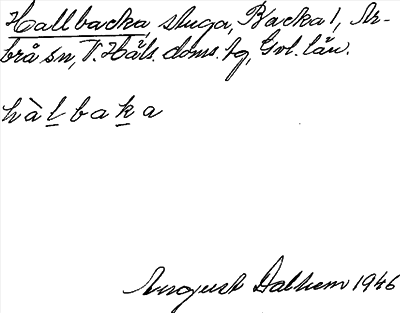 Hallbacka, stuga, Backa 1, Ar-
brå sn, V. Häls. doms. fg, Gvl. län.
hàlbaka
August Dalhem 1946